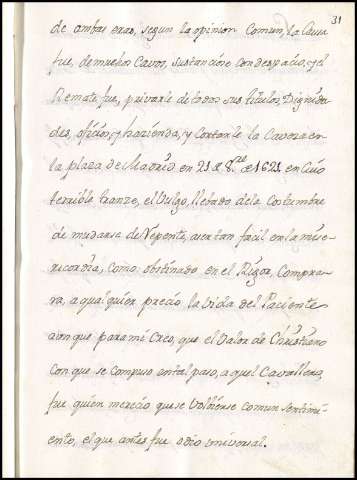 31
de ambas eras, segun la opinion Comun, la Causa
fue, de muchos Cavos, sustanciose con despacio, y el
Remate fue, privarle de todos sus titulos, Dignida
des, oficios, y hazienda, y Cortarle la Caveza en
la plaza de Madrid en 21 de 8.re de 1621 en Cuio
terrible tranze, el Vulgo, llebado de la Costumbre
de mudarse de repente, aver tan facil en la mise-
ricordia, como obstinado en el Rigor, Compra-
va, a qualquier precio la vida del Paciente
aunque para mi Creo, que el valor de Christiano
Con que se compuso en tal paso, aquel Cavallero,
fue quien merecio que se volviese comun sentimi-
ento, el que antes fue odio universal.